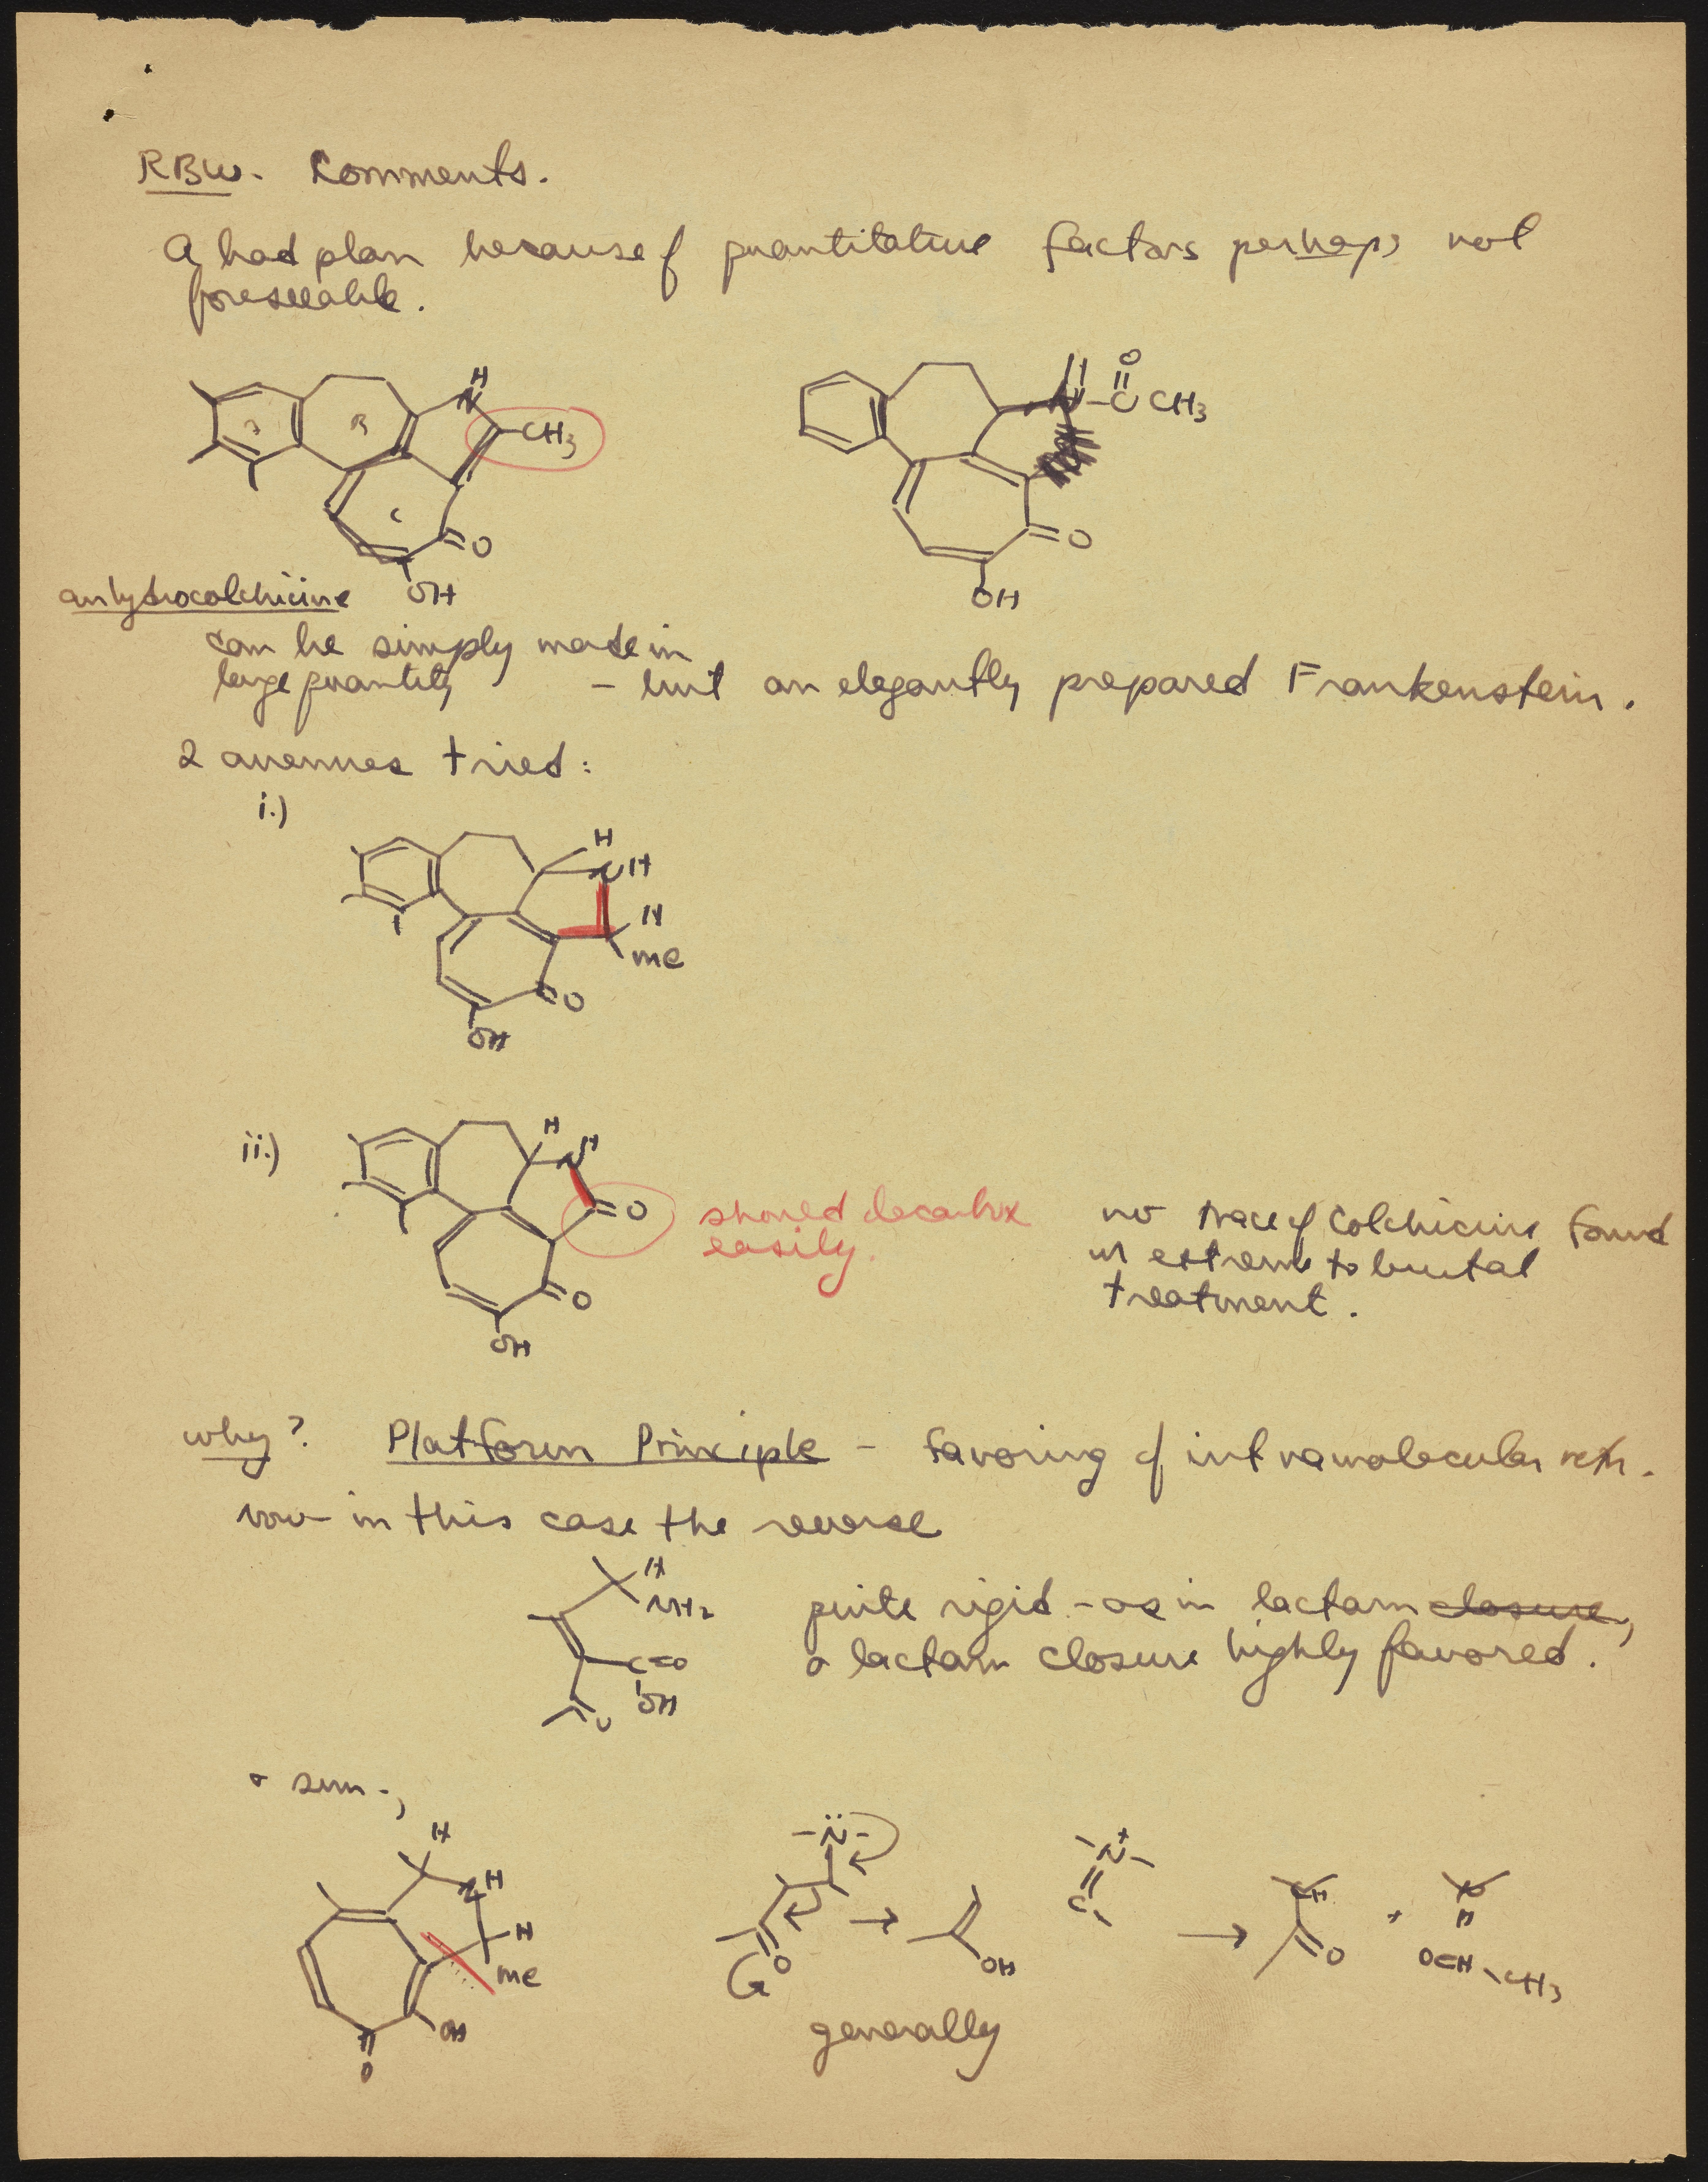 RBW. Comments.
A bad plan because of quantitative factors perhaps not
foreseeable.
H
N
CH3
B
C
O
OH
H
N
O
C CH3
O
OH
anhydrocolchicine
can be simply made in
large quantity - but an elegantly prepared Frankenstein.
2 avenues tried:
i.)
H
NH
H
me
O
OH
ii.)
H
H
N
O
O
OH
should decarbox
easily.
no trace of colchicine found
in extreme to brutal
treatment.
why? Platform Principle - favoring of intramolecular rctn.
now in this case the reverse
H
NH2
C=O
OH
O
quite rigid - as in lactam closure,
a lactam closure highly favored.
+ sim.,
H
NH
H
me
OH
O
-N̈-
O
→
OH
-N+-
C
→
CH
O
+
N
H
OCH-CH3
generally